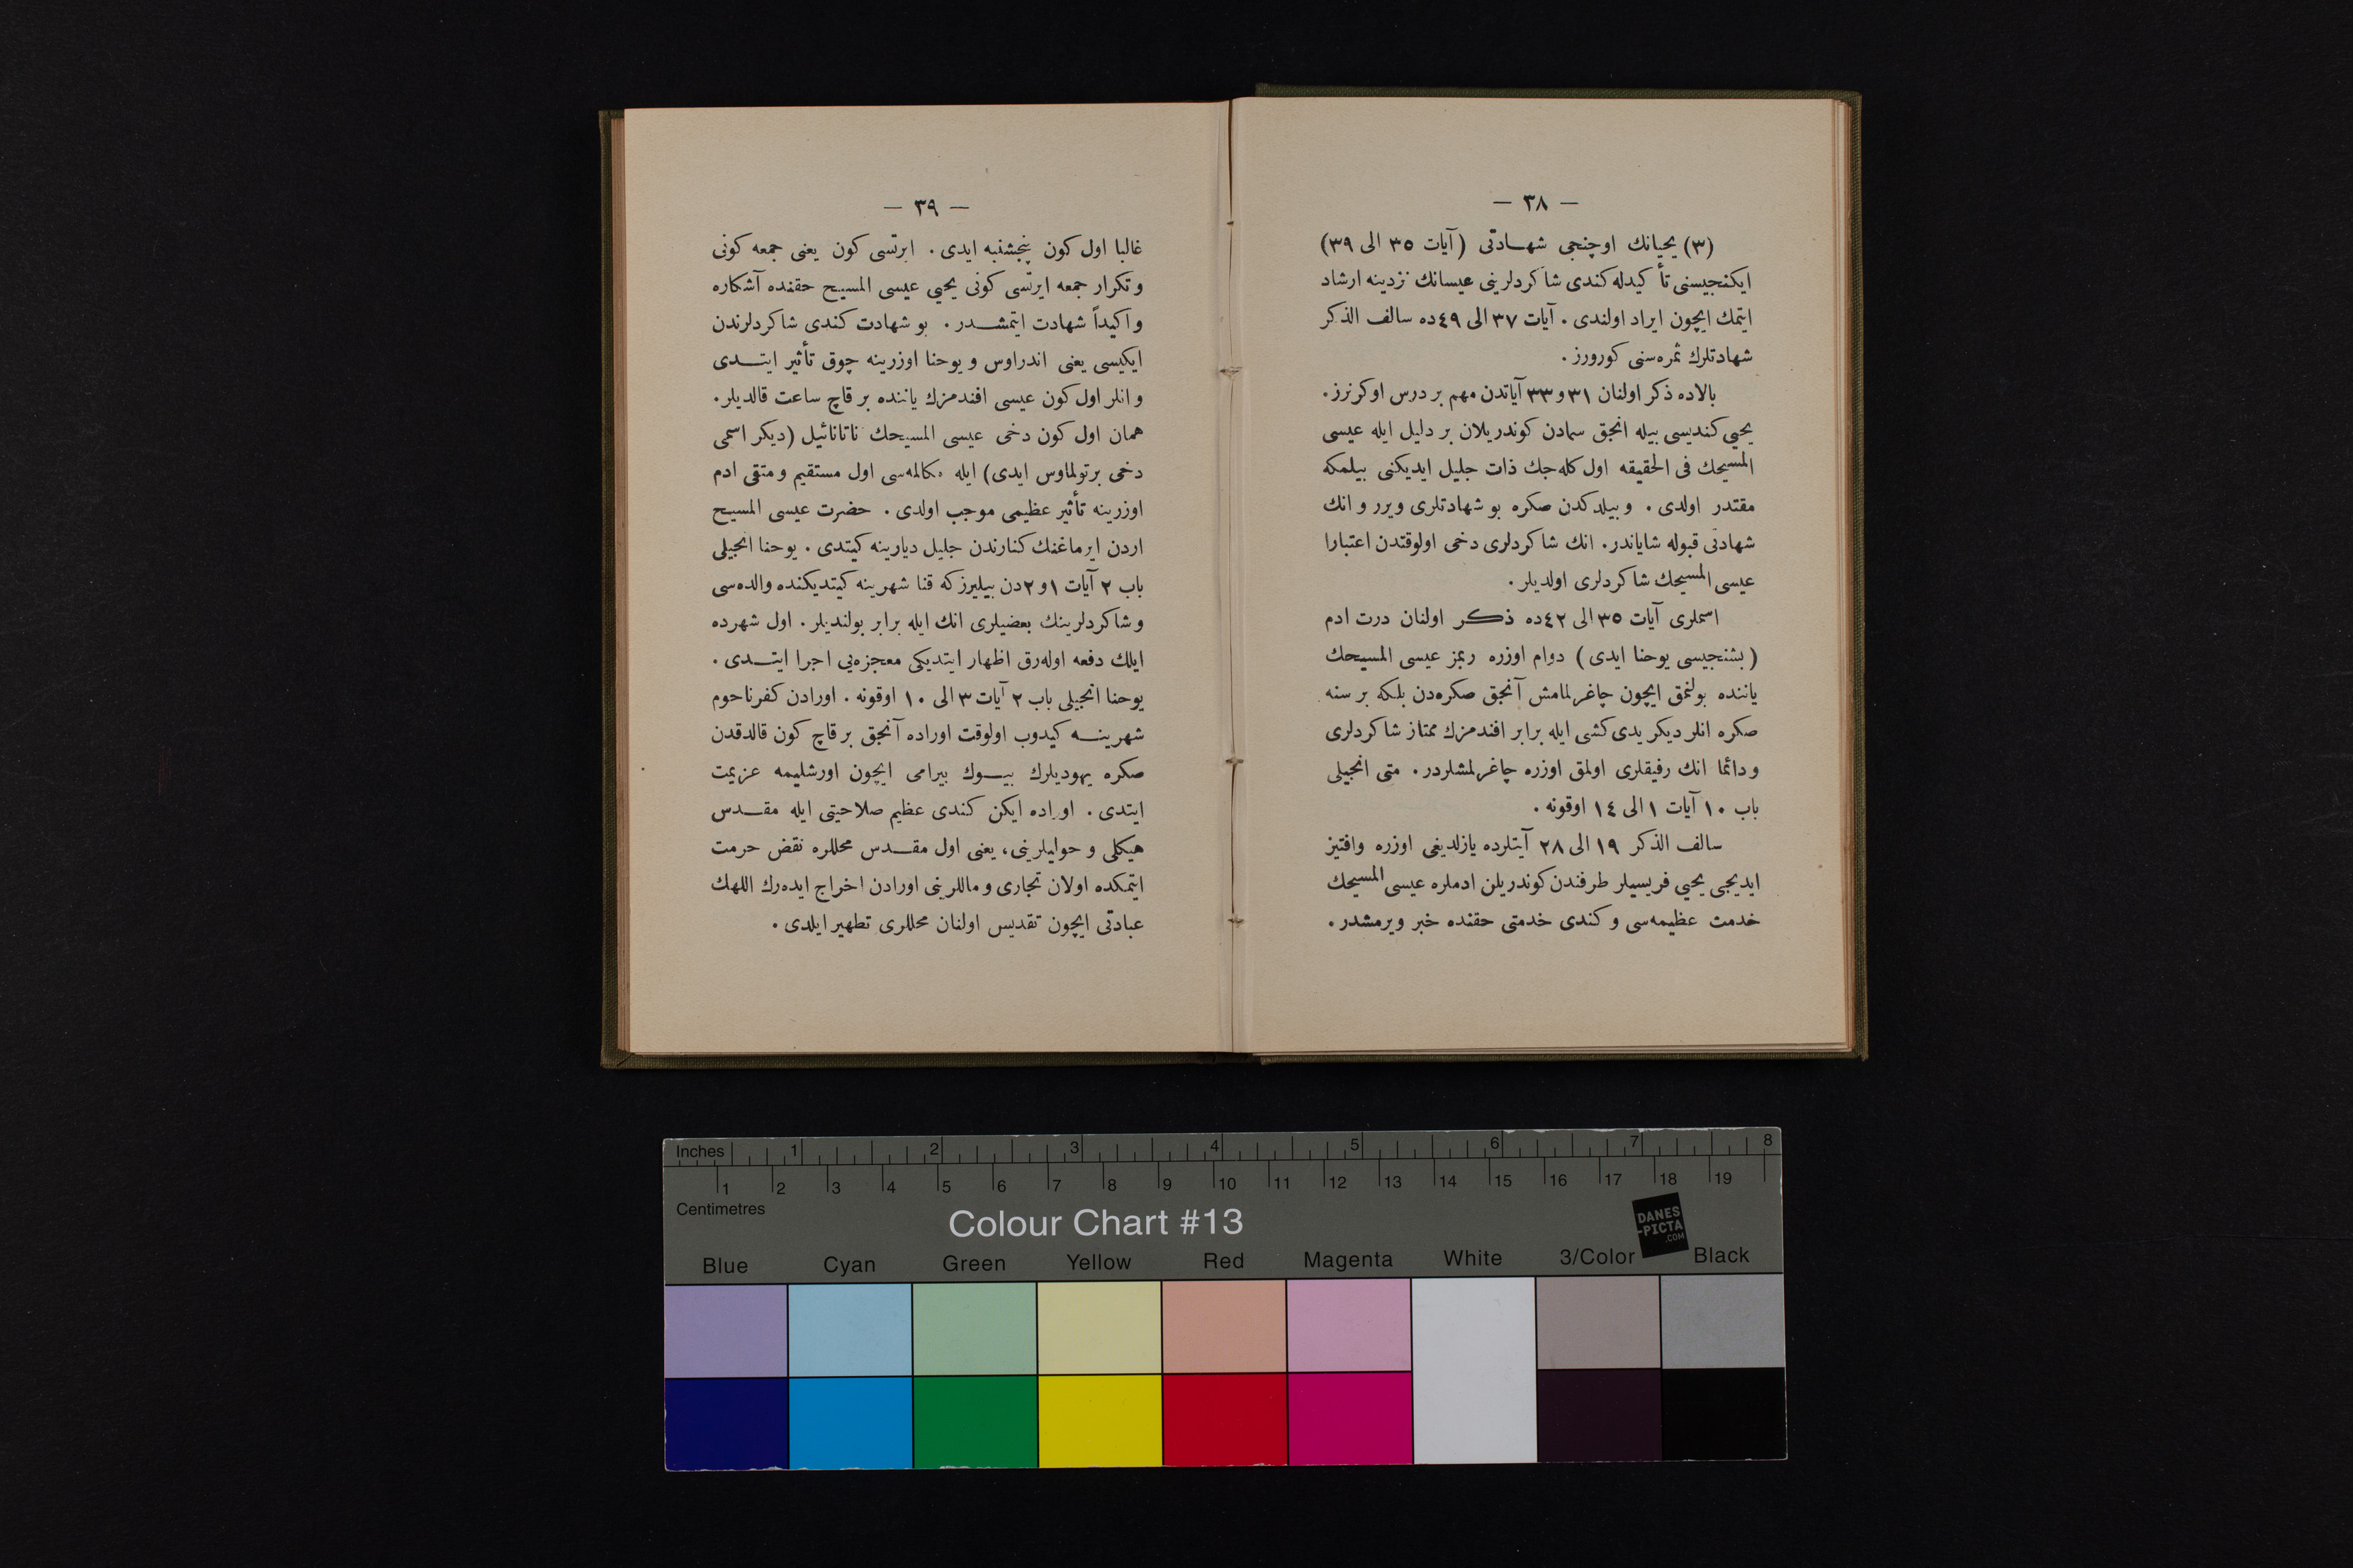 — ٣٨ —
(٣) يحيانك اوچنجى شهادتى (آيات ٣٥ الى ٣٩)
ايكنجيسنى تأكيدله كندى شاكردلرينى عيسانك نزدينه ارشاد
ايتمك ايچون ايراد اولندى . آيات ٣٧ الى ٤٩ ده سالف الذكر
شهادتلرك ثمره‌سنى كورورز .
بالاده ذكر اولنان ٣١ و ٣٣ آياتدن مهم بر درس اوكرنرز .
يحيى كنديسى بيله انجق سمادن كوندريلان بر دليل ايله عيسى
المسيحك فى الحقيقه اول كله‌جك ذات جليل ايديكنى بيلمكه
مقتدر اولدى . و بيلدكدن صكره بو شهادتلرى ويرر و انك
شهادتى قبوله شاياندر . انك شاكردلرى دخى اولوقتدن اعتبارا
عيسى المسيحك شاكردلرى اولديلر .
اسملرى آيات ٣٥ الى ٤٢ ده ذكر اولنان درت ادم
(بشنجيسى يوحنا ايدى) دوام اوزره ربمز عيسى المسيحك
ياننده بولنمق ايچون چاغرلمامش آنجق صكره‌دن بلكه بر سنه
صكره انلر ديكر يدى كشى ايله برابر افندمزك ممتاز شاكردلرى
و دائما انك رفيقلرى اولمق اوزره چاغرلمشلردر . متى انجيلى
باب ١٠ آيات ١ الى ١٤ اوقونه .
سالف الذكر ١٩ الى ٢٨ آيتلرده يازلديغى اوزره وافتيز
ايديجى يحيى فريسيلر طرفندن كوندريلن ادملره عيسى المسيحك
خدمت عظيمه‌سى و كندى خدمتى حقنده خبر ويرمشدر .
— ٣٩ —
غالبا اول كون پنجشنبه ايدى . ايرتسى كون يعنى جمعه كونى
و تكرار جمعه ايرتسى كونى يحيى عيسى المسيح حقنده آشكاره
و اكيداً شهادت ايتمشدر . بو شهادت كندى شاكردلرندن
ايكيسى يعنى اندراوس و يوحنا اوزرينه چوق تأثير ايتدى
و انلر اول كون عيسى افندمزك ياننده بر قاچ ساعت قالديلر .
همان اول كون دخى عيسى المسيحك ناتانائيل (ديكر اسمى
دخى برتولماوس ايدى) ايله مكالمه‌سى اول مستقيم و متقى ادم
اوزرينه تأثير عظيمى موجب اولدى . حضرت عيسى المسيح
اردن ايرماغنك كنارندن جليل ديارينه كيتدى . يوحنا انجيلى
باب ٢ آيات ١ و ٢ دن بيليرز كه قنا شهرينه كيتديكنده والده‌سى
و شاكردلرينك بعضيلرى انك ايله برابر بولنديلر . اول شهرده
ايلك دفعه اوله‌رق اظهار ايتديكى معجزه‌يى اجرا ايتدى .
يوحنا انجيلى باب ٢ آيات ٣ الى ١٠ اوقونه . اورادن كفرناحوم
شهرينه كيدوب اولوقت اوراده آنجق بر قاچ كون قالدقدن
صكره يهوديلرك بيوك بيرامى ايچون اورشليمه عزيمت
ايتدى . اوراده ايكن كندى عظيم صلاحيتى ايله مقدس
هيكلى و حوليلرينى ، يعنى اول مقدس محللره نقض حرمت
ايتمكده اولان تجارى و ماللرينى اورادن اخراج ايده‌رك اللهك
عبادتى ايچون تقديس اولنان محللرى تطهير ايلدى .
Inches 1 2 3 4 5 6 7 8
1 2 3 4 5 6 7 8 9 10 11 12 13 14 15 16 17 18 19
Centimetres
Colour Chart #13
DANES
-PICTA
.COM
Blue Cyan Green Yellow Red Magenta White 3/Color Black